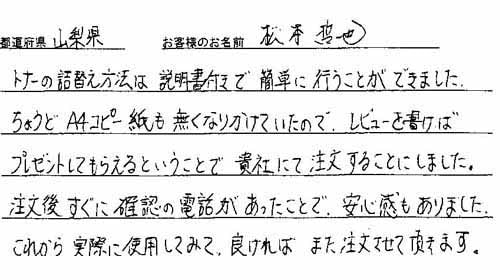 都道府県 山梨県 お客様のお名前 松本哲也
トナーの詰替え方法は説明書付きで簡単に行うことができました。
ちょうどA4コピー紙も無くなりかけていたので、レビューを書けば
プレゼントしてもらえるということで貴社にて注文することにしました。
注文後すぐに確認の電話があったことで、安心感もありました。
これから実際に使用してみて、良ければまた注文させて頂きます。